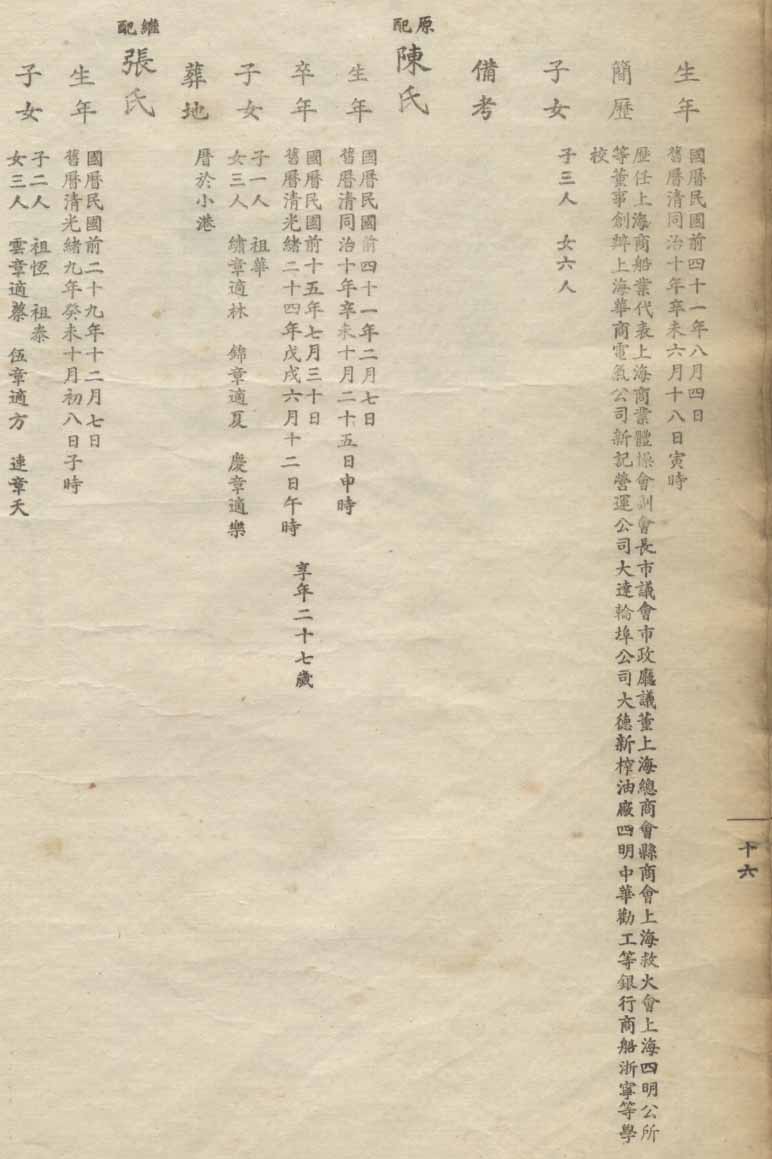 十六
生年
國曆民國前四十一年八月四日
舊曆清同治十年辛未六月十八日寅時
簡歷
歷任上海商船業代表上海商業體操會副會長市議會市政廳議董上海總商會縣商會上海救火會上海四明公所
等董事創辦上海華商電氣公司新記營運公司大達輪埠公司大德新榨油廠四明中華勸工等銀行商船浙寧等學
校
子女
子三人 女六人
備考
原配
陳氏
生年
國曆民國前四十一年二月七日
舊曆清同治十年辛未十月二十五日申時
卒年
國曆民國前十五年七月三十日
舊曆清光緒二十四年戊戌六月十二日午時
享年二十七歲
子女
子一人 祖華
女三人 繡章適林 錦章適夏 慶章適樂
葬地
厝於小港
繼配
張氏
生年
國曆民國前二十九年十二月七日
舊曆清光緒九年癸未十月初八日子時
子女
子二人 祖恆 祖泰
女三人 雲章適蔡 伍章適方 連章夭